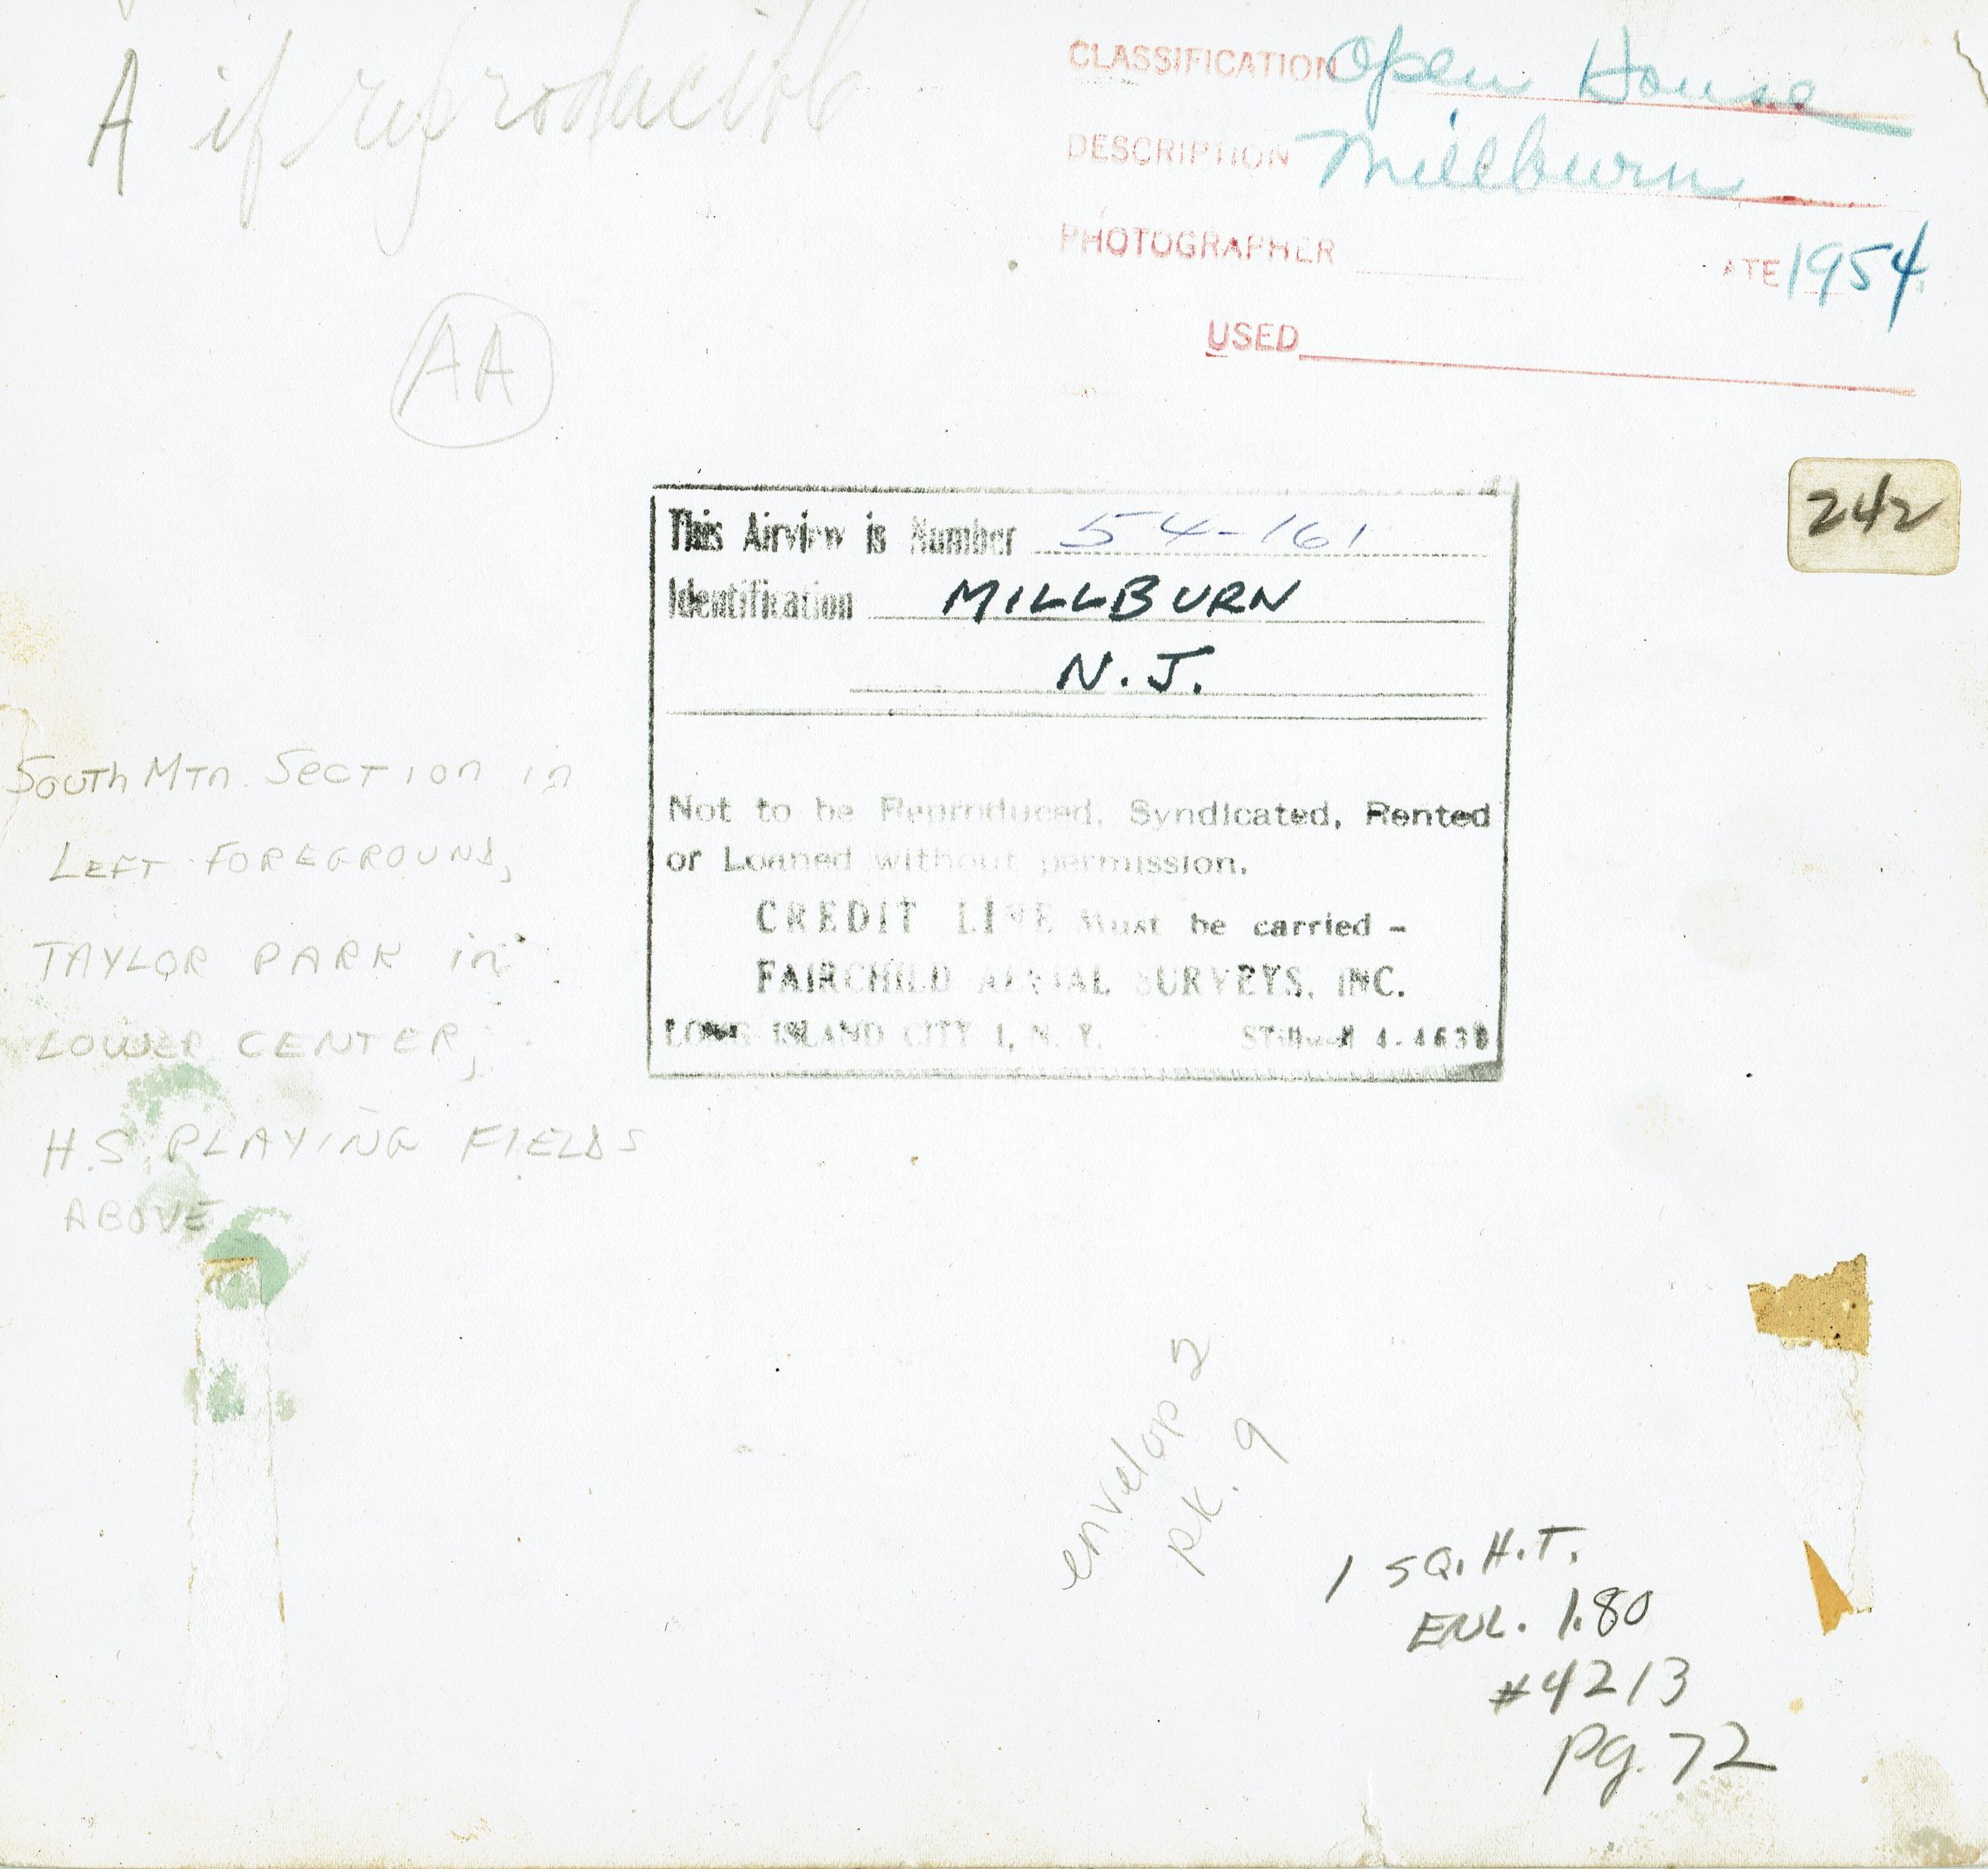 A if reproducible
CLASSIFICATION Open House
DESCRIPTION Millburn
PHOTOGRAPHER ATE 1954
USED
AA
242
This Airview is Number 54-161
Identification MILLBURN
N.J.
Not to be Reproduced, Syndicated, Rented
or Loaned without permission.
CREDIT LINE Must be carried -
FAIRCHILD AERIAL SURVEYS, INC.
LONG ISLAND CITY 1, N. Y. 4-4638
South Mtn. Section in
LEFT FOREGROUND,
TAYLOR PARK in
LOWER CENTER,
H.S. PLAYING FIELDS
ABOVE
envelop 2
pk. 9
1 SQ. H.T.
ENL. 1.80
#4213
pg. 72